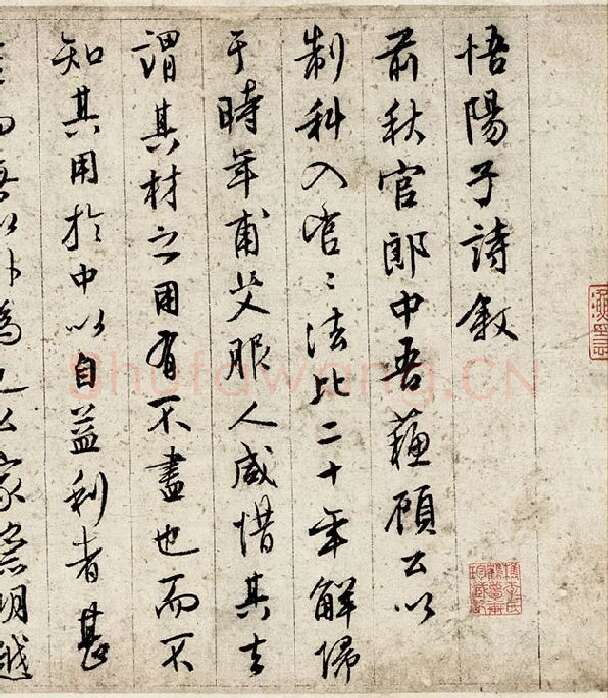 悟陽子詩敘
前秋官郎中吾蘇顧公以
制科入官〻法比二十年解歸
于時年甫艾服人咸惜其去
謂其材之用有不盡也而不
知其用於中以自益利者甚
以外為也公家
Shufawang.CN